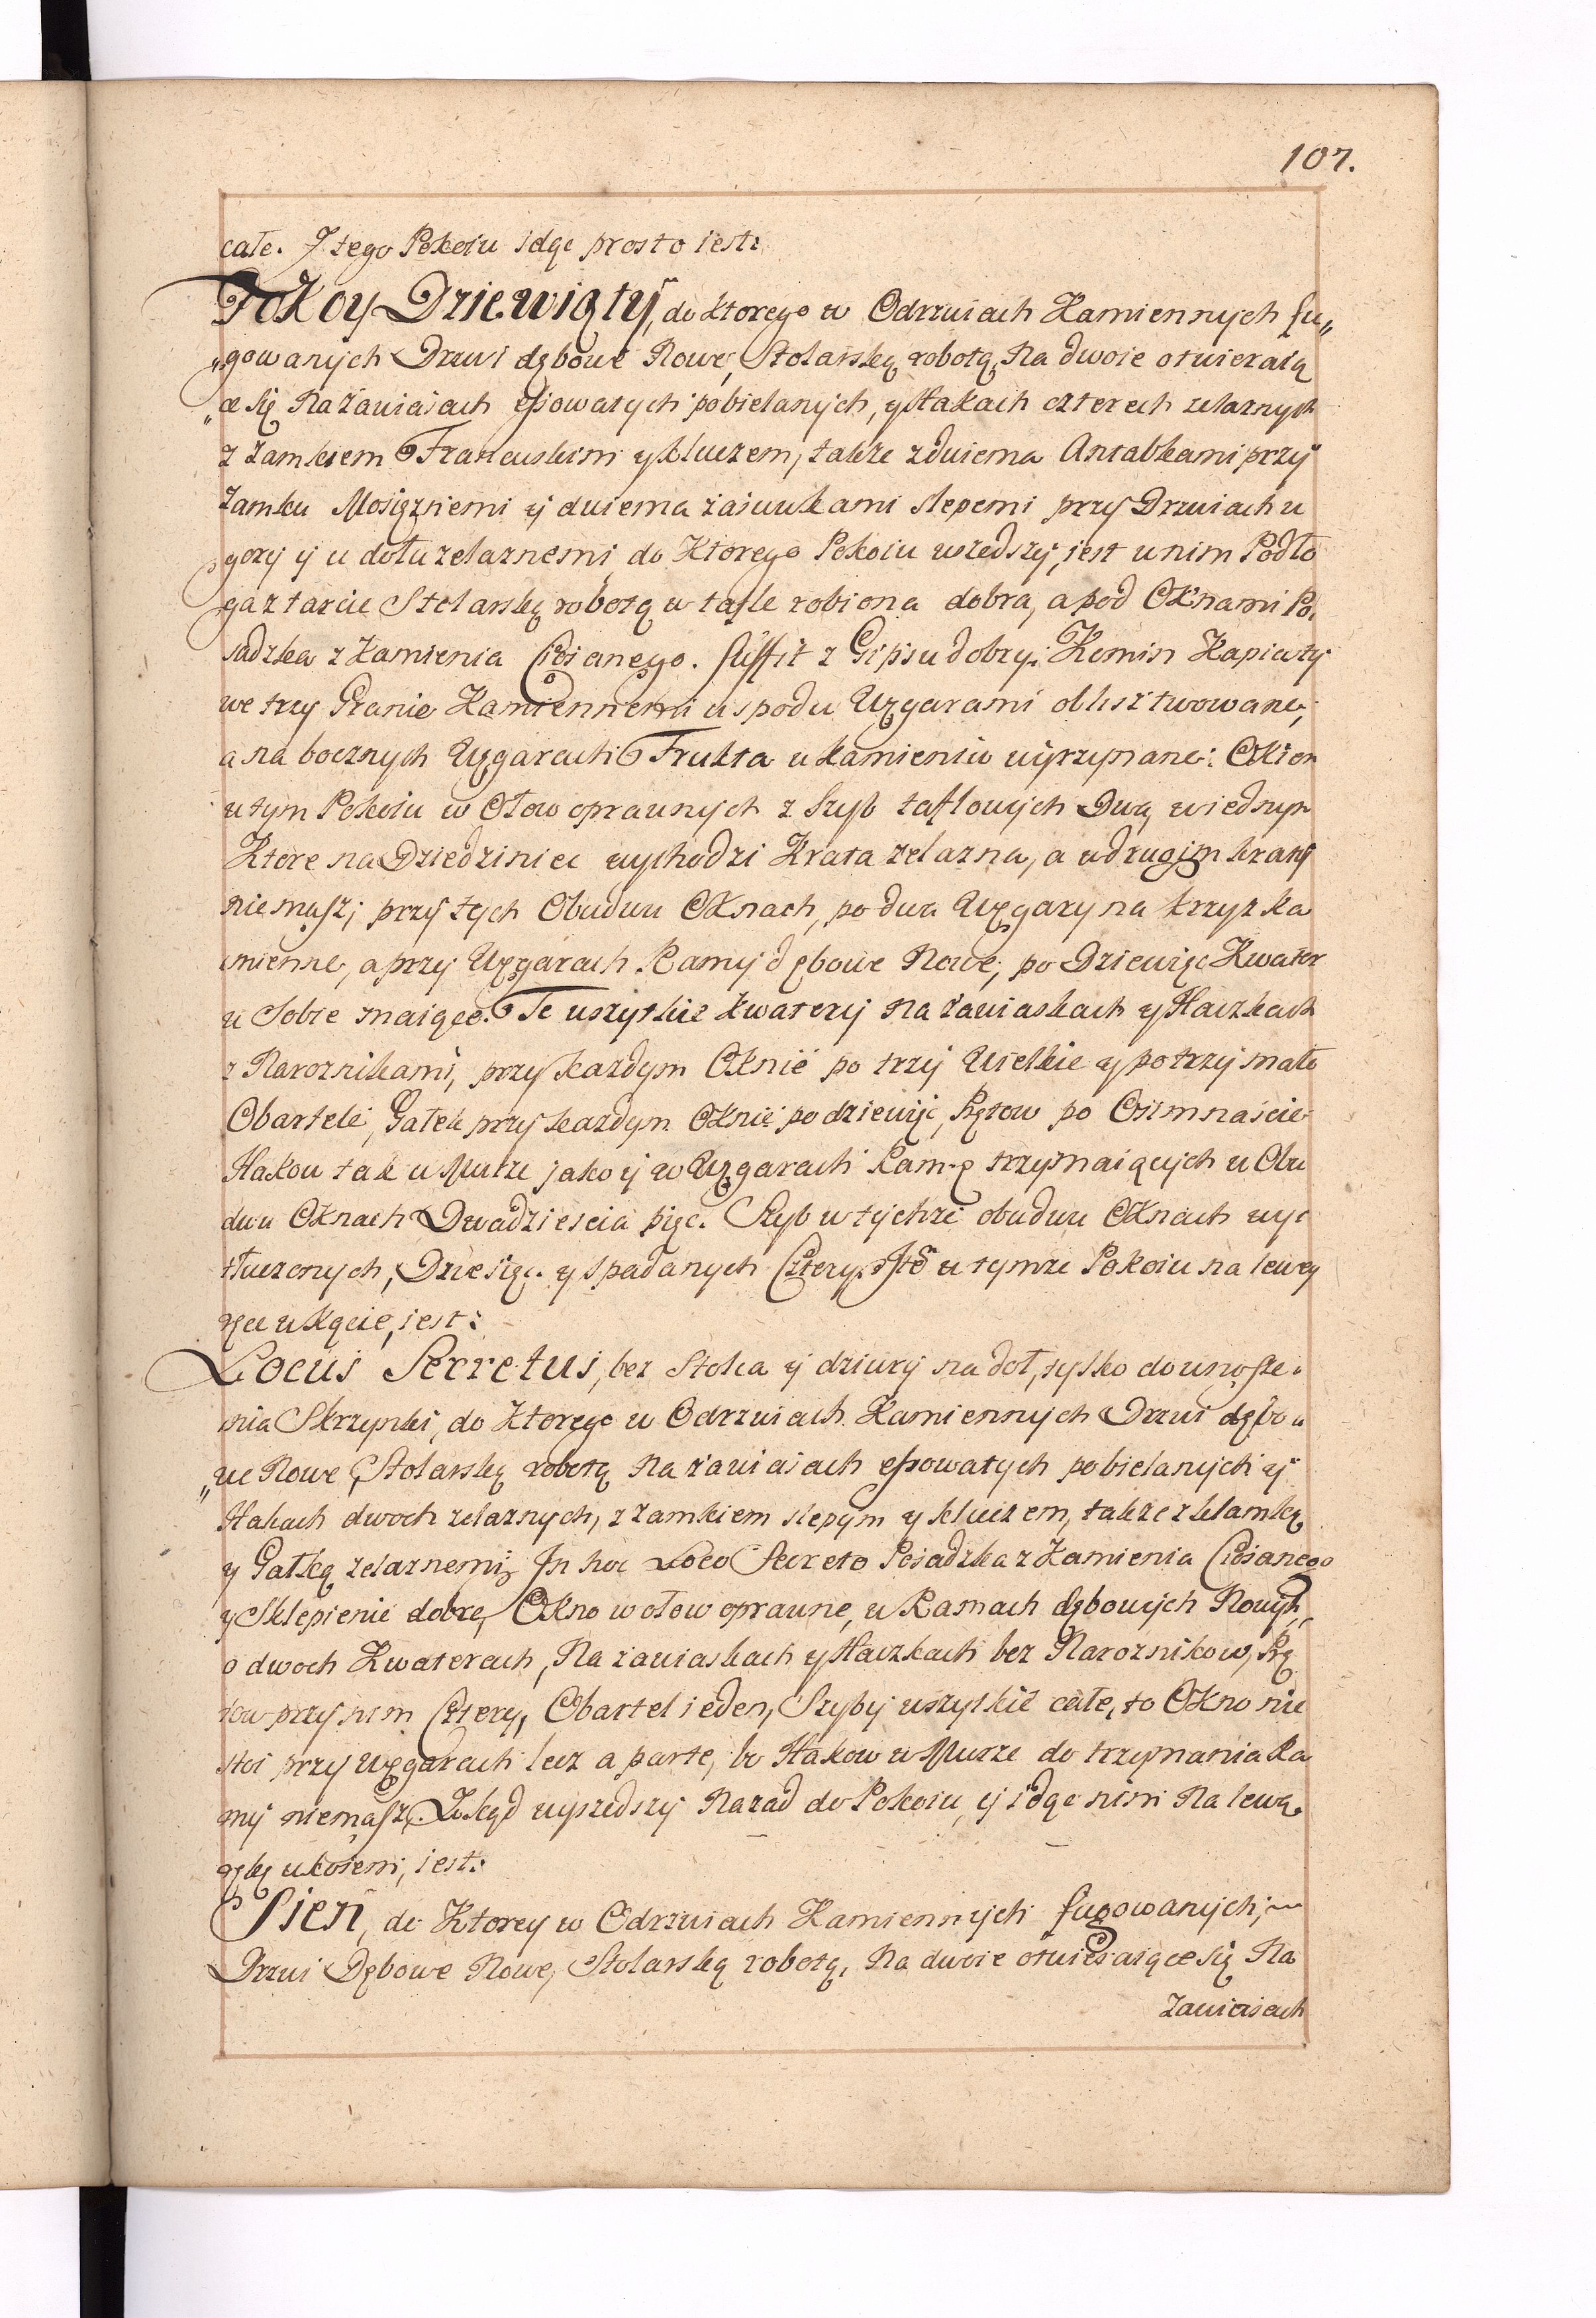 107.
całe. Z tego Pokoiu idąc prosto iest:
Pokoy Dziewiąty, do ktorego w Odrzwiach Kamiennych fu„
„gowanych Drzwi dębowe Nowe, Stolarską robotą, Na dwoie otwieraią
„ce się Na zawiasach essowatych pobielanych, y Hakach czterech zelaznych
z zamkiem Francuskim y kluczem, takze z dwiema Antabkami przy
zamku Mosięzniemi y dwiema zasuwkami slepemi przy Drzwiach u
gory y u dołu zelaznemi, do Ktorego Pokoiu wszedszy, jest w nim Podło
ga z tarcic Stolarską robotą w tafle robiona dobra, a pod Oknami Po„
sadzka z Kamienia Ciosanego. Suffit z Gipsu dobry. Komin Kapiaty
we trzy Granie Kamiennemi u spodu Węgarami obksztwowane,
a na bocznych Węgarach Frukta w kamieniu wyrzynane: Okien
w tym Pokoiu w Ołow oprawnych z Szyb taflowych Dwa, w iednym
Ktore na Dziedziniec wychodzi Krata zelazna, a w drugim kraty
niemasz; przy tych Obudwu Oknach, po dwa Węgary na krzyz ka
mienne, a przy Węgarach Ramy dębowe Nowe, po Dziewięc Kwater
w Sobie maiące. Te wszytkie kwatery na zawiaskach y Haczkach
z Naroznikami, przy kazdym Oknie po trzy Wielkie y po trzy małe
Obartele, Gałek przy kazdym Oknie po dziewięc, Prętow po Osimnascie
Hakow tak w Murze jako y w Węgarach Ramę trzymaiących w Obu
dwu Oknach Dwadziescia pięc. Szyb w tychze obudwu Oknach wy„
tłuczonych, Dziesięc y spadanych Cztery. Itō w tymze Pokoiu na lewey
ręce w Kącie, iest:
Locus Secretus, bez Stolca y dziury na doł, tylko do wnosze„
nia Skrzynki, do Ktorego w Odrzwiach Kamiennych Drzwi dębo„
„we Nowe, Stolarską robotą Na zawiasach essowatych pobielanych y
Hakach dwoch zelaznych, z zamkiem slepym y kluczem, takze z klamką
y Gałką zelaznemi, In hoc Loco Secreto Posadzka z Kamienia Ciosanego
y Sklepienie dobre, Okno w ołow oprawne, w Ramach dębowych Nowych,
o dwoch Kwaterach, Na zawiaskach y Haczkach bez Naroznikow, Prę
tow przy nim Cztery, Obartel ieden, Szyby wszytkie całe, to Okno nie
stoi przy Węgarach lecz a parte, bo Hakow w Murze do trzymania Ra
my niemasz. Zkąd wyszedszy Nazad do Pokoiu, y idąc nim Na lewą
ręką ukosem, iest:
Sień, do Ktorey w Odrzwiach Kamiennych fugowanych,
Drzwi Dębowe Nowe, Stolarską robotą, Na dwoie otwieraiące się Na
Zawiasach